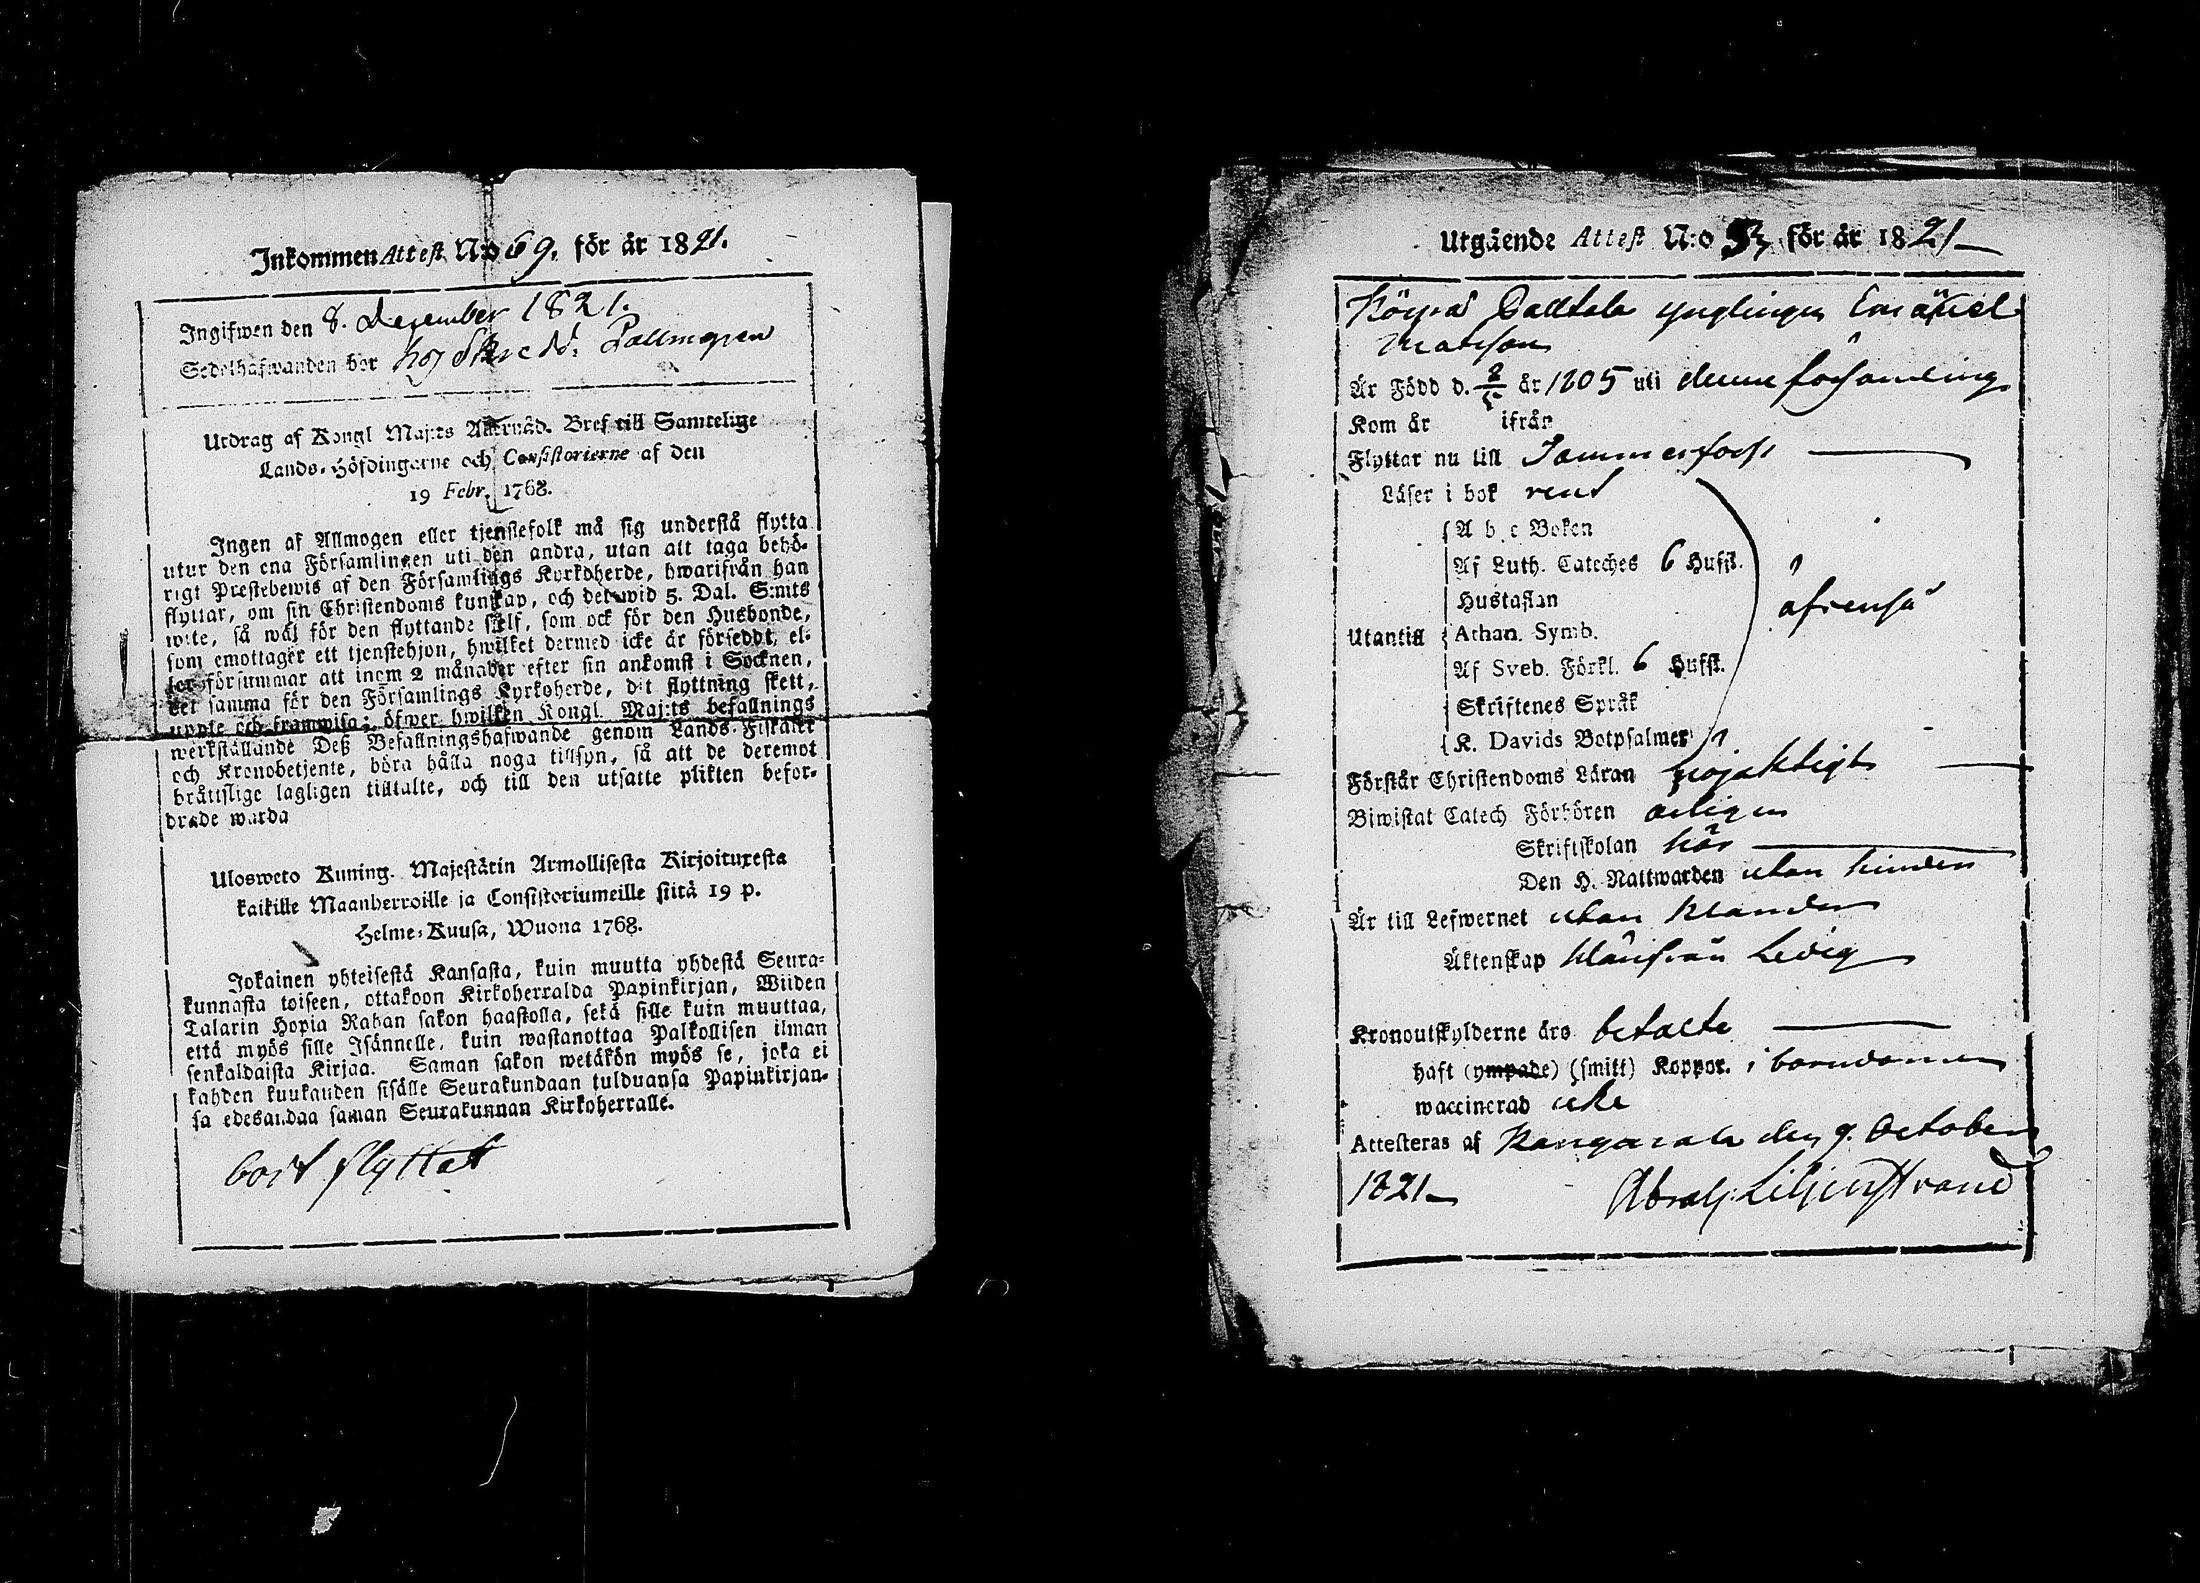 Inkommen Attest N:o 69. för år 1821.
Ingifwen den 8. December 1821.
Sedelhafwanden bor hos Skredd. Pallmgren
Utdrag af Kongl Maj:ts Allernåd. Bref till Samtelige
Lands-Höfdingarne och Consistorierne af den
19 Febr. 1768.
Ingen af Allmogen eller tjenstefolk må sig understå flytta
utur den ena Församlingen uti den andra, utan att taga behö-
rigt Prestebewis af den Församlings Kyrkoherde, hwarifrån han
flyttar, om sin Christendoms kunskap, och det wid 5. Dal. S:mts
wite, så wäl för den flyttande sielf, som ock för den Husbonde,
som emottager ett tjenstehjon, hwilket dermed icke är förseddt, el-
ler försummar att inom 2 månader efter sin ankomst i Socknen,
det samma för den Församlings Kyrkoherde, dit flyttning skett,
uppte och framwisa; öfwer hwilken Kongl. Maj:ts befallnings
werkställande Deß Befallningshafwande genom Lands-Fiskaler
och Kronobetjente, böra hålla noga tillsyn, så att de deremot
bråttslige lagligen tilltalte, och till den utsatte plikten befor-
drade warda
Ulosweto Kuning. Majestätin Armollisesta Kirjoituxesta
kaikille Maanherroille ja Consistoriumeille siitä 19 p.
Helme-Kuusa, Wuona 1768.
Jokainen yhteisestä Kansasta, kuin muutta yhdestä Seura-
kunnasta toiseen, ottakoon Kirkoherralda Papinkirjan, Wiiden
Talarin Hopia Rahan sakon haastolla, sekä sille kuin muuttaa,
että myös sille Isännelle, kuin wastanottaa Palkollisen ilman
senkaldaista Kirjaa. Saman sakon wetäkön myös se, joka ei
kahden kuukauden sisälle Seurakundaan tulduansa Papinkirjan-
sa edesandaa saman Seurakunnan Kirkoherralle.
bort flyttat
Utgående Attest N:o för år 1821
ynglingen
Matsson
Är Född d. 2/5 år 1805 uti denna församling
Kom år ifrån
Flyttar nu till Tammerfors
Läser i bok rent
A b c Boken
Af Luth. Cateches 6 Hufst.
Hustaflan
Utantill Athan. Symb.
Af Sveb. Förkl. 6 Hufst.
Skriftenes Språk
K. Davids Botpsalmer
äfvenså
Förstår Christendoms Läran nöjaktigt
Biwistat Catech Förhören årligen
Skriftskolan här
Den H. Nattwarden utan hinder
Är till Lefwernet utan klander
Äktenskap härifrån Ledig
Kronoutskylderne äro betalte
Haft (ympade) (smitt) Koppor. i barndomen
waccinerad icke
Attesteras af Kangasala den 9. October
1821 Abrah: Liljenstrand